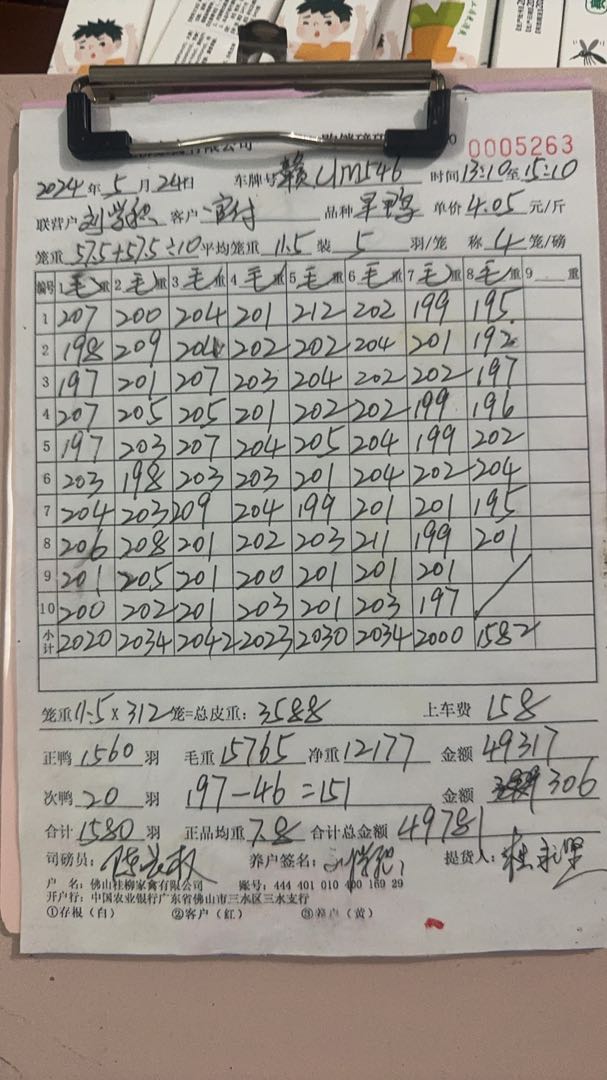 有限公司 0005263
2024年5月24日 车牌号 赣 时间 13:10至15:10
联营户 刘学 客户 品种 单价 4.05 元/斤
笼重 57.5+57.5÷10 平均笼重 11.5 装 5 羽/笼 称 4 笼/磅
编号 1毛重 2毛重 3毛重 4毛重 5毛重 6毛重 7毛重 8毛重 9 重
1 207 200 204 201 212 202 199 195
2 198 209 204 202 202 204 201 192
3 197 201 207 203 204 202 202 197
4 207 205 205 201 202 202 199 196
5 197 203 207 204 205 204 199 202
6 203 198 203 203 201 204 202 204
7 204 203 209 204 199 201 201 195
8 206 208 201 202 203 211 199 201
9 201 205 201 200 201 201 201
10 200 202 201 203 201 203 197
小计 2020 2034 2042 2023 2030 2034 2000 1582
笼重 11.5 X 312 笼=总皮重: 3588 上车费 158
正鸭 1560 羽 毛重 15765 净重 12177 金额 49317
次鸭 20 羽 197-46=151 金额 306
合计 1580 羽 正品均重 7.8 合计总金额 49781
司磅员: 陈 权 养户签名: 刘学 提货人:
户 名: 佛山桂柳家禽有限公司 账号: 444 401 010 400 169 29
开户行: 中国农业银行广东省佛山市三水区三水支行
①存根(白) ②客户(红) ③养户(黄)